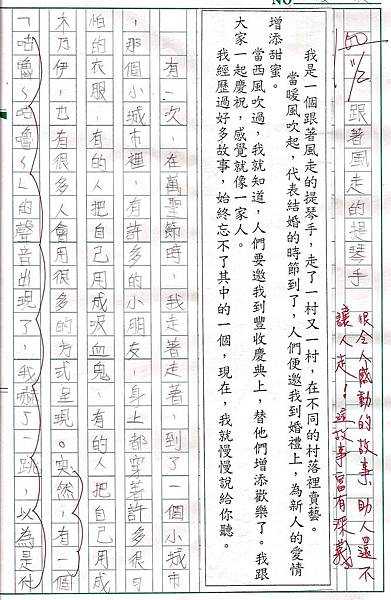 NO
跟著風走的提琴手
很令人感動的故事,助人還不
讓人走!這故事富有深義
我是一個跟著風走的提琴手,走了一村又一村,在不同的村落裡賣藝。
當暖風吹起,代表結婚的時節到了,人們便邀我到婚禮上,為新人的愛情
增添甜蜜。
當西風吹過,我就知道,人們要邀我到豐收慶典上,替他們增添歡樂了。我跟
大家一起慶祝,感覺就像一家人。
我經歷過好多故事,始終忘不了其中的一個,現在,我就慢慢說給你聽。
有一次,在萬聖節時,我走著走著,到了一個小城市
,那個小城市裡,有許多的小朋友,身上都穿著許多很可
怕的衣服,有的人把自己用成吸血鬼,有的人把自己用成
木乃伊,也有很多人會用很多的方式呈現。突然,有一個
「咕嚕~咕嚕~」的聲音出現了,我嚇了一跳,以為是什